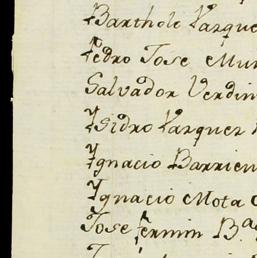 Barthole Vazque
Pedro Jose Mun
Salvador Verdin
Ysidro Vazquez
Ygnacio Barrien
Ygnacio Mota
Jose fermin B.